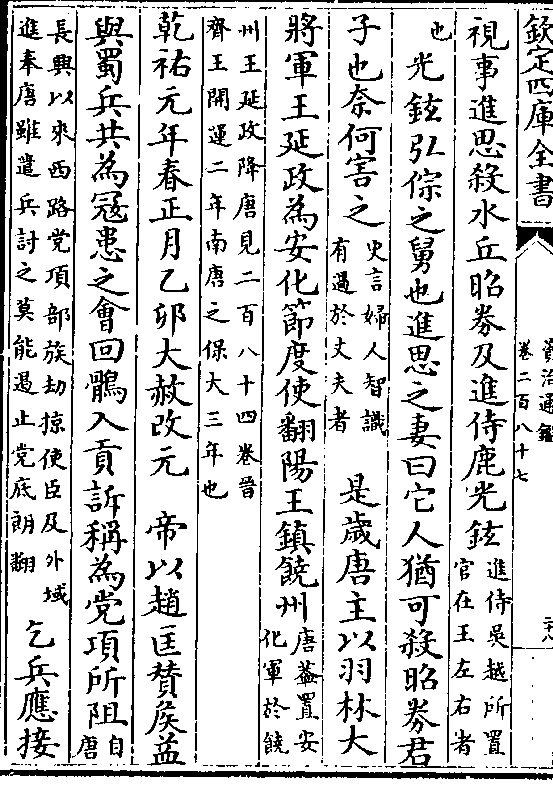 欽定四庫全書
資治通鑑
卷二百八十七
視事進思殺水丘昭券及進侍鹿光鉉
進侍吳越所置
官在王左右者
也
光鉉弘倧之舅也進思之妻曰它人猶可殺昭券君
子也奈何害之
史言婦人智識
有過於丈夫者
是歲唐主以羽林大
將軍王延政為安化節度使翻陽王鎮饒州
唐葢置安
化軍於饒
州王延政降唐見二百八十四卷晉
齊王開運二年南唐之保大三年也
乾祐元年春正月乙卯大赦改元 帝以趙匡贊矦益
與蜀兵共為冦患之會回鶻入貢訴稱為党項所阻
自
唐
長興以來西路党項部族劫掠使臣及外域
進奉唐雖遣兵討之莫能遏止党底朗翻
乞兵應接